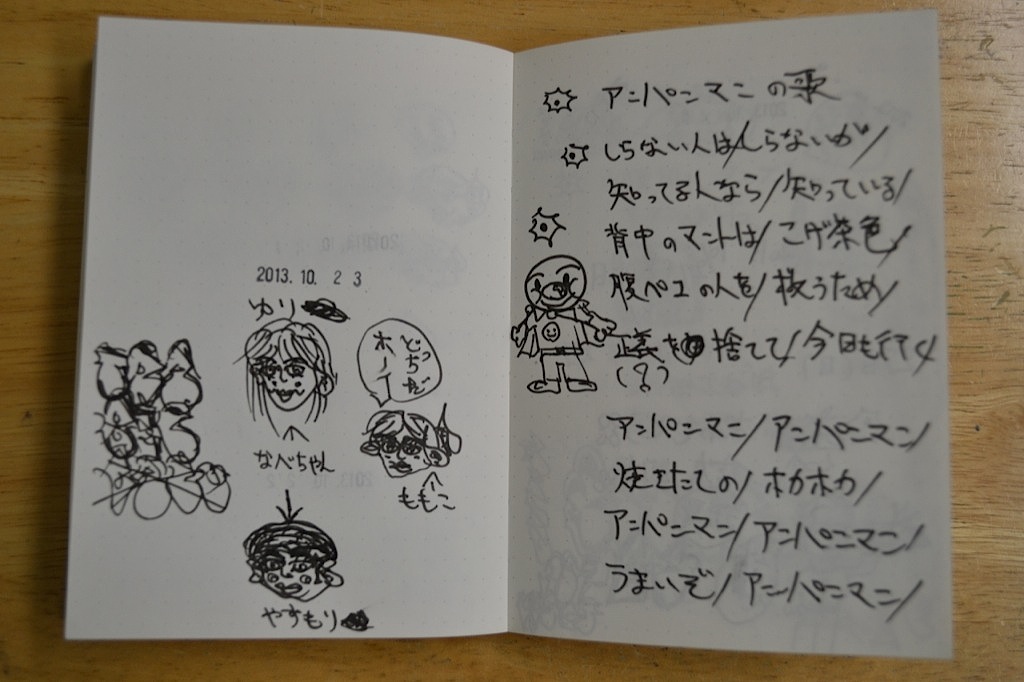 2013.10. 23
ゆり
どっちだ
ホーイ
なべちゃん
ももこ
やすもり
アンパンマンの歌
しらない人は/しらないが/
知ってる人なら/知っている/
背中のマントは/こげ茶色/
腹ペコの人を/救うため/
正義を捨てて/今日も行く/
(?)
アンパンマン/アンパンマン/
焼きたての/ホカホカ/
アンパンマン/アンパンマン/
うまいぞ/アンパンマン/